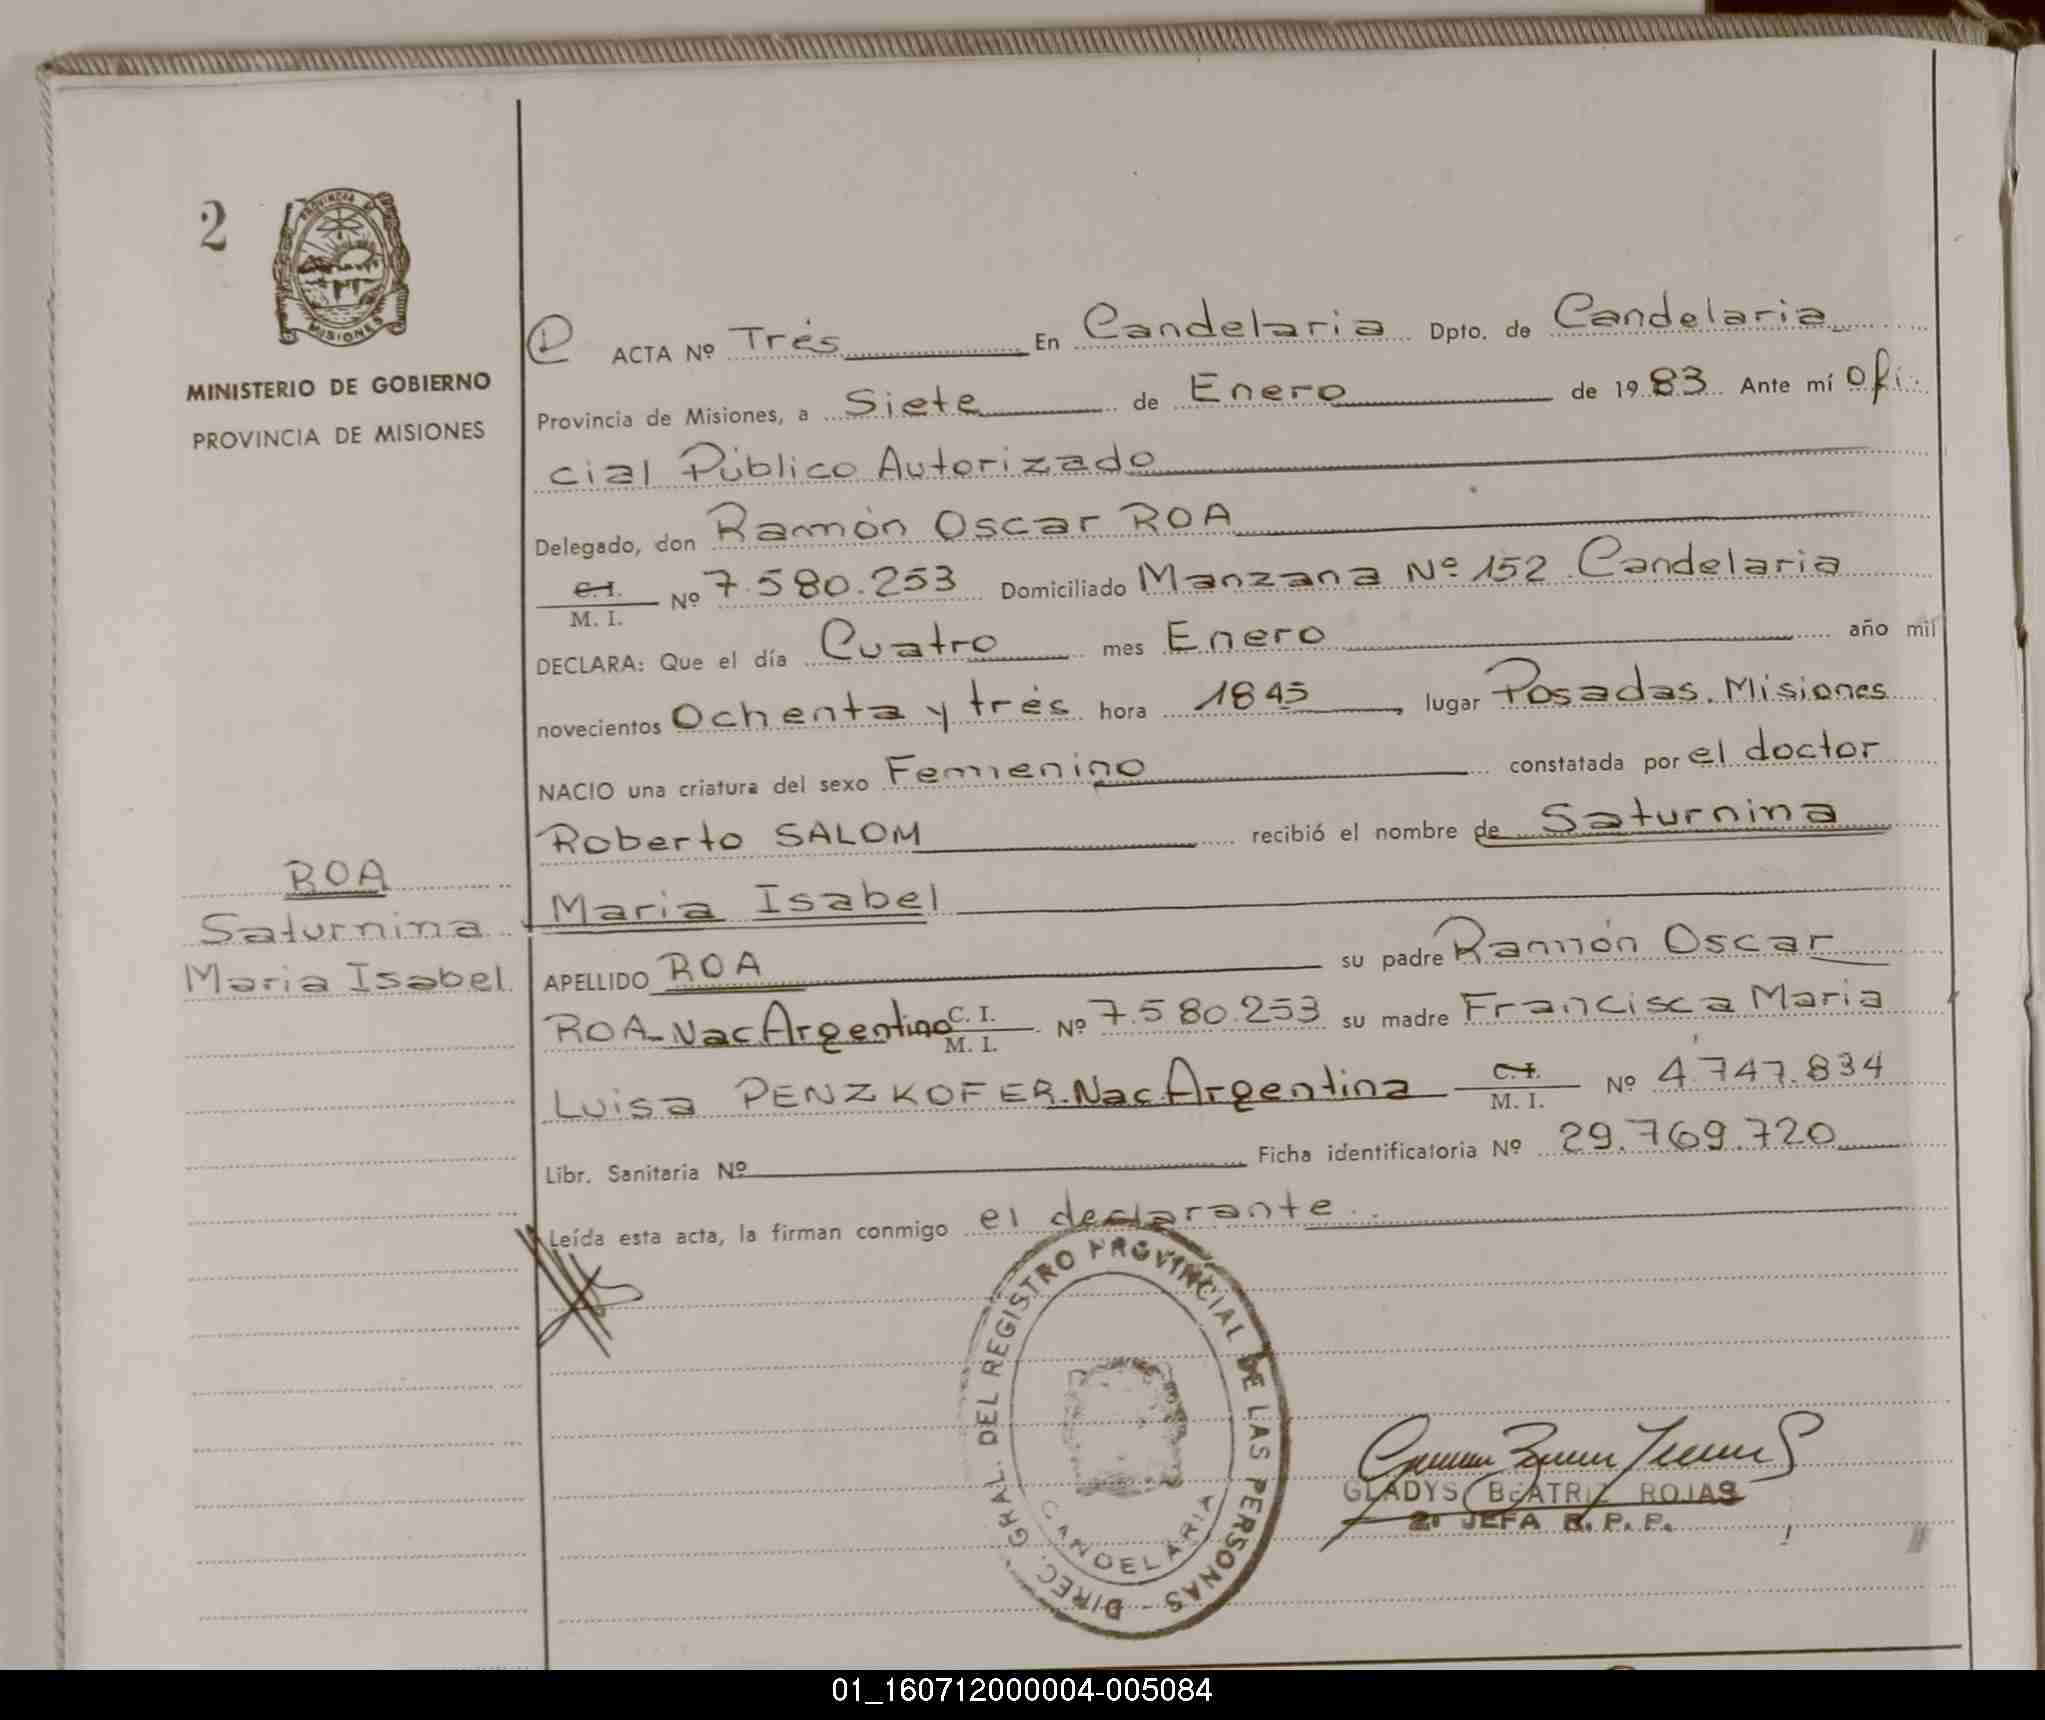 2
PROVINCIA D
MISIONES
MINISTERIO DE GOBIERNO
PROVINCIA DE MISIONES
ACTA Nº Trés En Candelaria Dpto. de Candelaria
Provincia de Misiones, a Siete de Enero de 19 83 Ante mí Ofi
cial Público Autorizado
Delegado, don Ramón Oscar ROA
C.I. M. I. Nº 7.580.253 Domiciliado Manzana Nº 152 Candelaria
DECLARA: Que el día Cuatro mes Enero año mil
novecientos Ochenta y trés hora 1845, lugar Posadas. Misiones
NACIO una criatura del sexo Femienino constatada por el doctor
Roberto SALOM recibió el nombre de Saturnina
Maria Isabel
ROA
Saturnina
Maria Isabel.
APELLIDO ROA su padre Ramón Oscar
ROA-Nac Argentino C. I. M. I. Nº 7.580.253 su madre Francisca Maria
Luisa PENZKOFER-Nac Argentina C.I. M. I. Nº 4.747.834
Libr. Sanitaria Nº Ficha identificatoria Nº 29.769.720
Leída esta acta, la firman conmigo el declarante..
DIREC. GRAL. DEL REGISTRO PROVINCIAL DE LAS PERSONAS -
CANDELARIA
GLADYS BEATRIZ ROJAS
2º JEFA R. P. P.
01_160712000004-005084